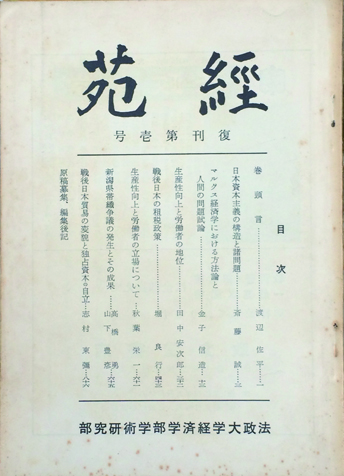 經苑
復刊第壱号
目次
巻頭言……渡辺佐平…一
日本資本主義の構造と諸問題……斎藤誠…三
マルクス経済学における方法論と
人間の問題試論……金子信造…
生産性向上と労働者の地位……田中安次郎…
戦後日本の租税政策……堀良行…
生産性向上と労働者の立場について…秋葉栄一…
新潟県帯織争議の発生とその成果……高橋勇
山下豊彦…
戦後日本貿易の変貌と独占資本の自立…志村東彌…
原稿募集、編集後記
法政大学経済学部学術研究部